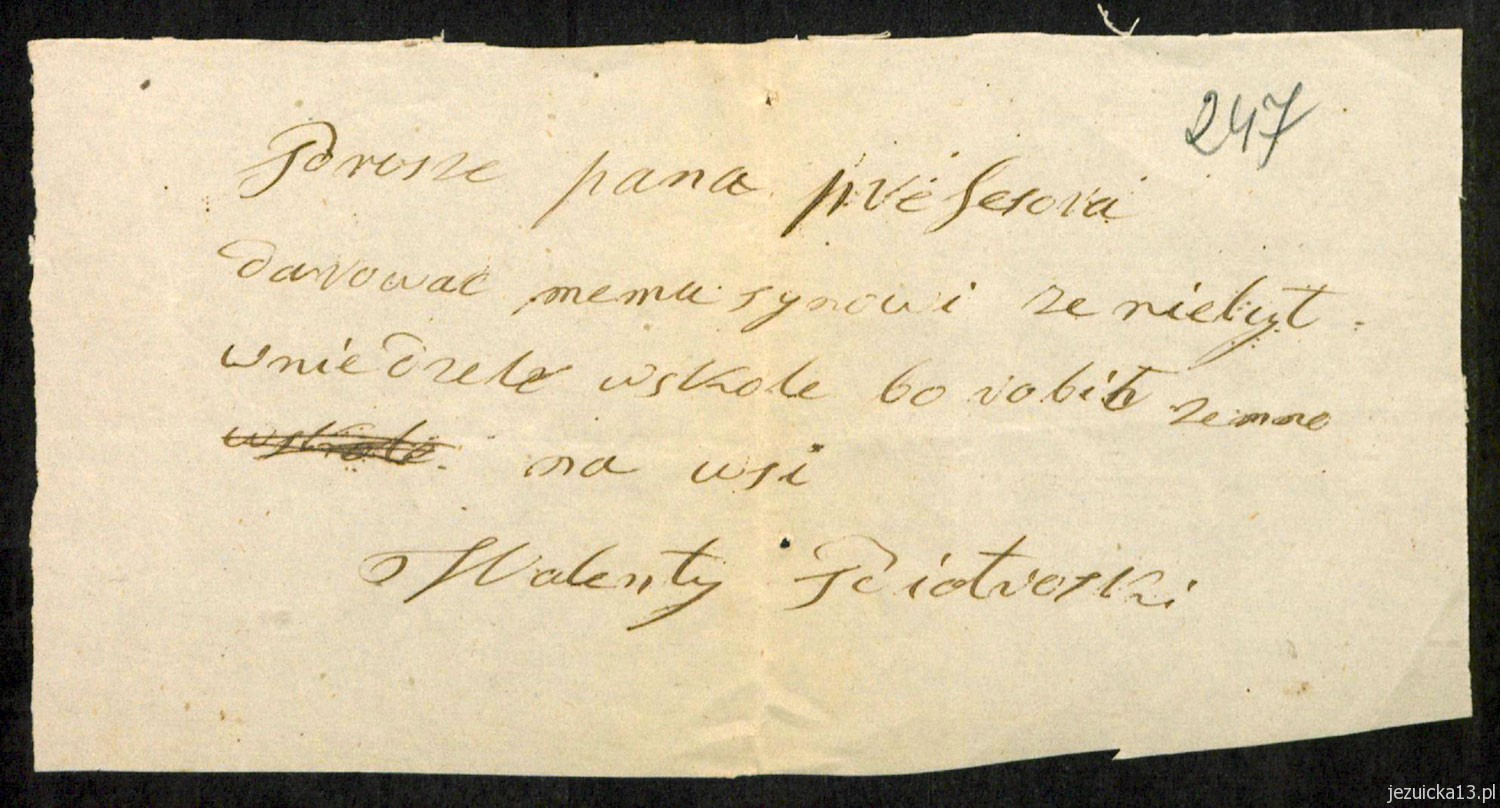 247
Prosze pana profesora
darować memu synowi ze niebył
wniedzele wskole bo robił zemno
wskole na wsi
Walenty Piotroski
jezuicka13.pl